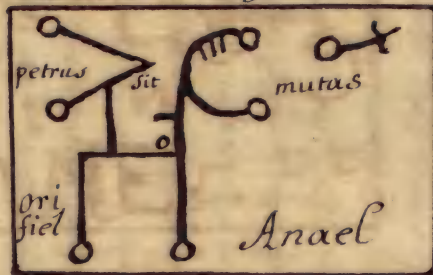 petrus sit mutas
ori
fiel
Anael